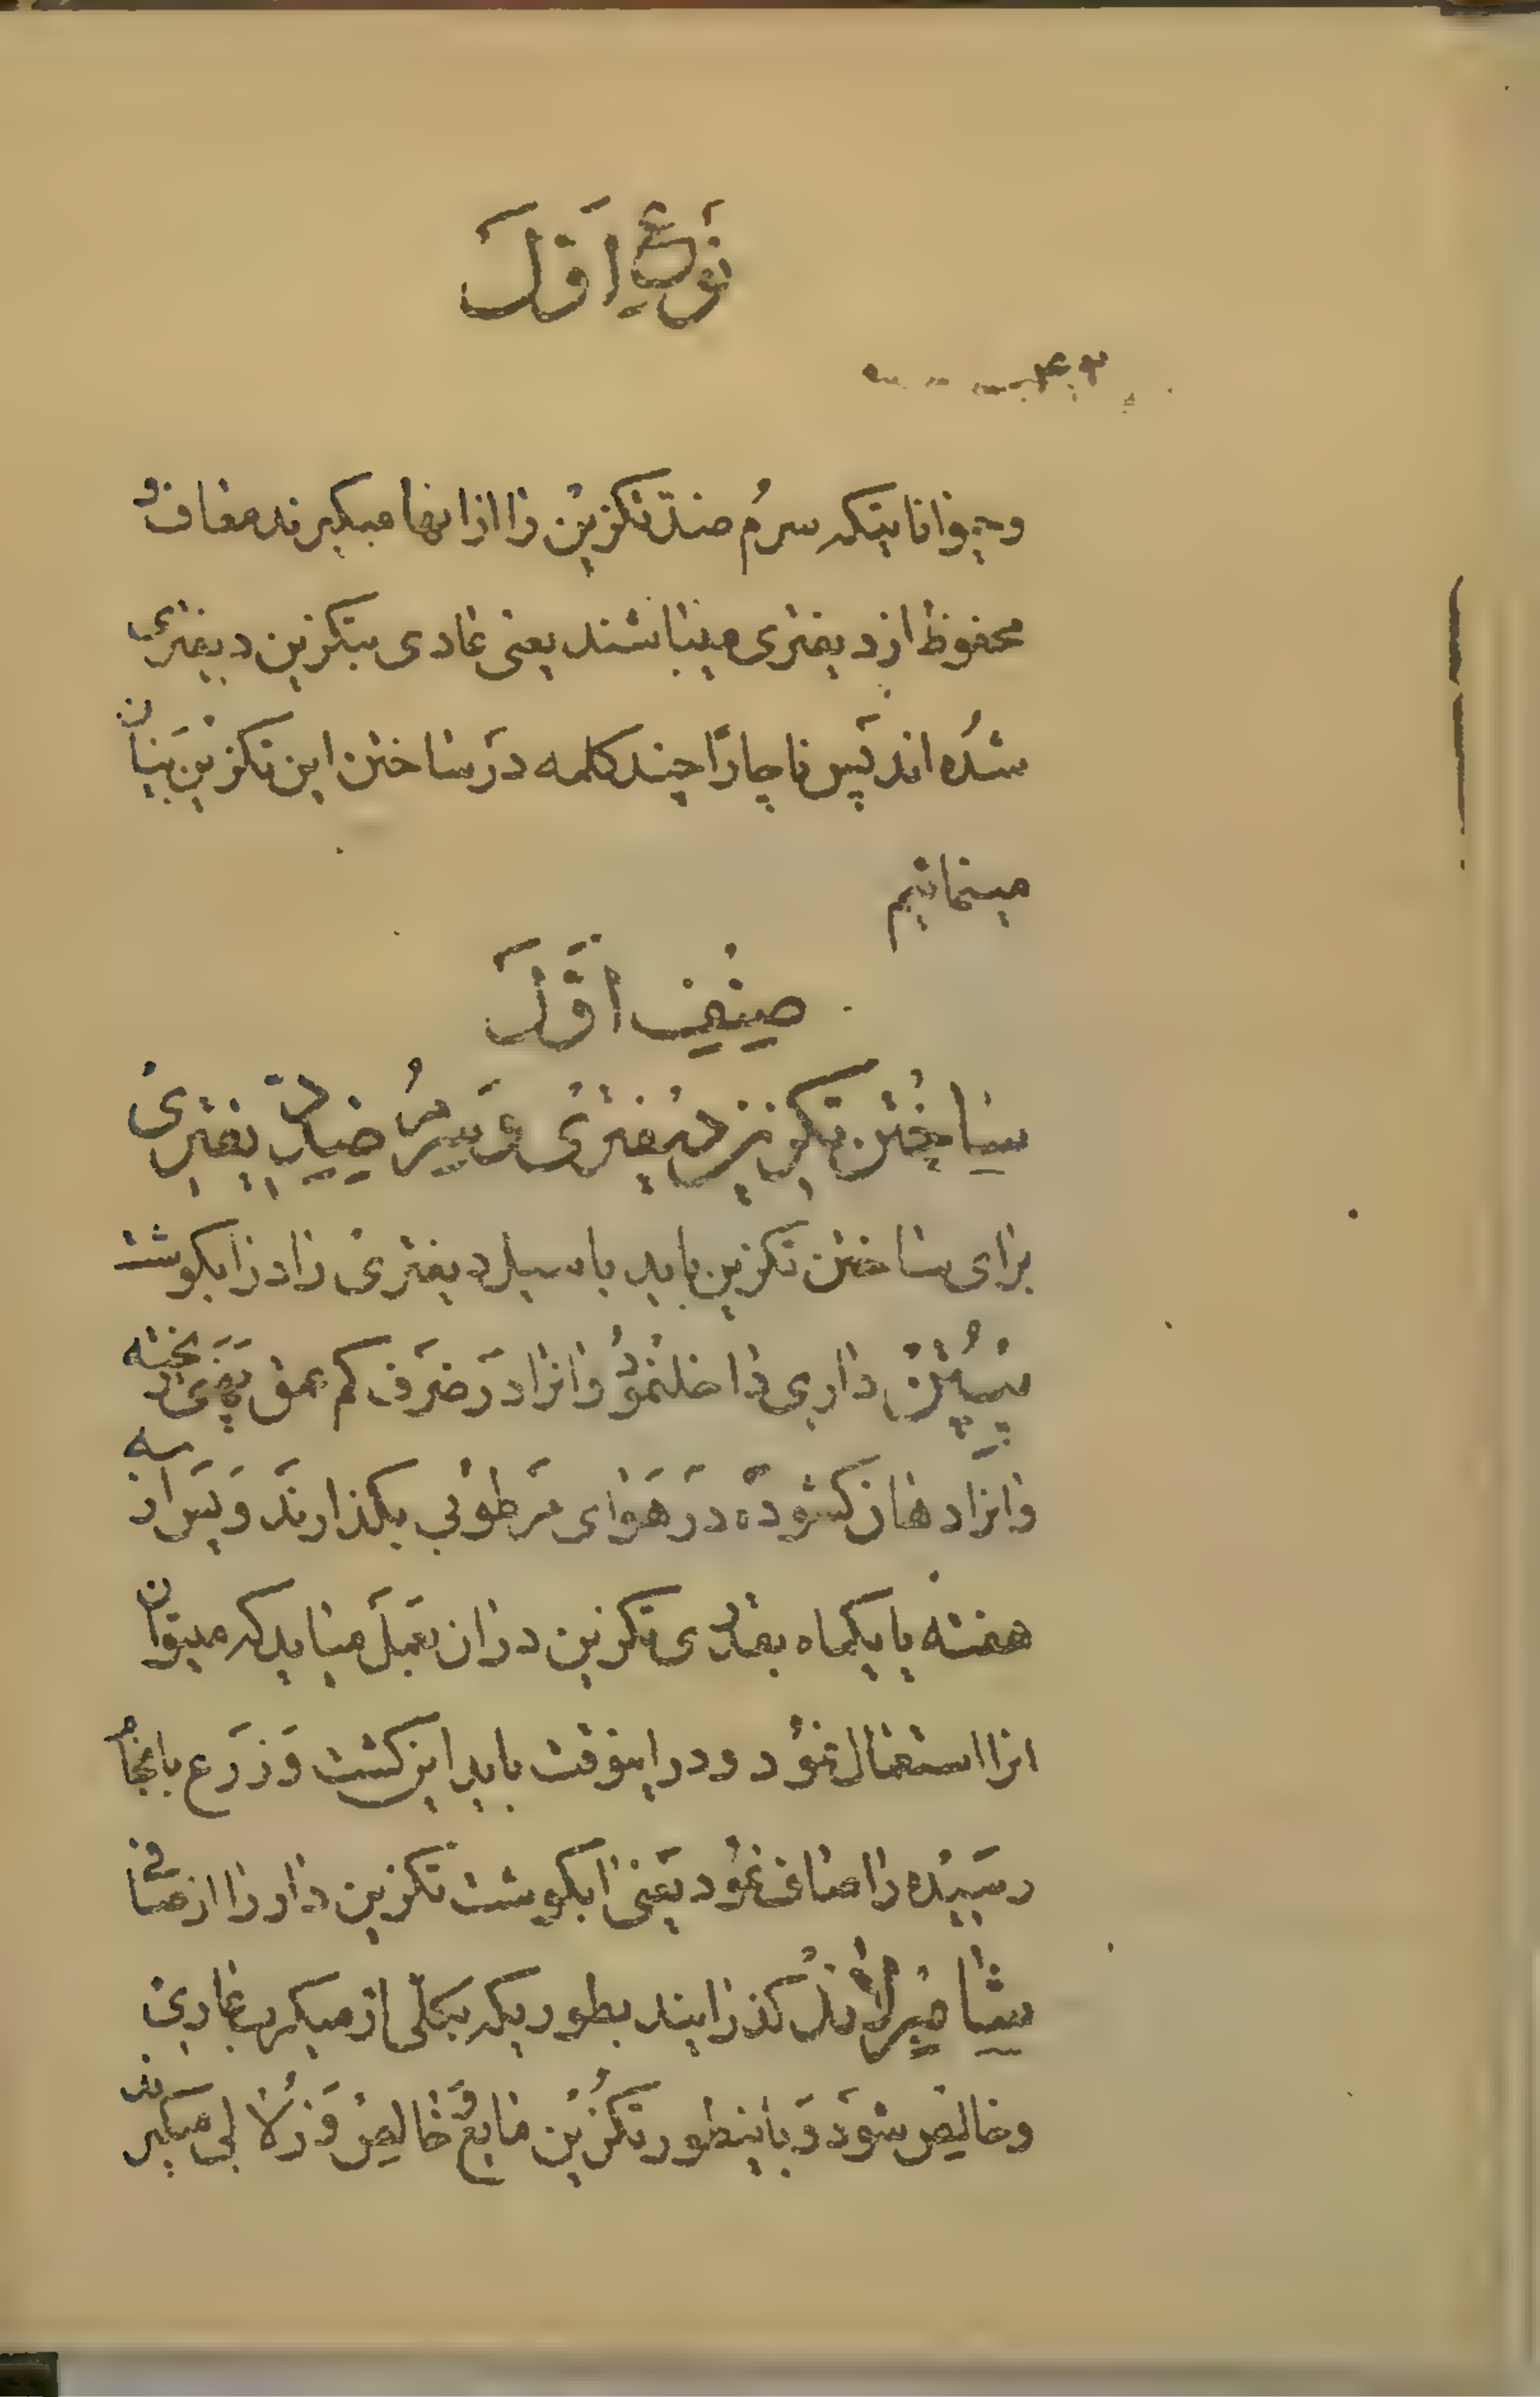 نوع اول
وحیواناتیکه سرم ضدتکزین را ازانها میگیرند معاف و
محفوظ از دیفتری میباشند یعنی عادی بتکزین دیفتری
شده اند پس ناچارا چند کلمه در ساختن این تکزین بیان
مینمائیم
صنف اول
ساختن تکزین دیفتری و سرم ضد دیفتری
برای ساختن تکزین باید باسیل دیفتری را در ابکوشت
پپتن داری داخلنمود وانرا در ظرف کم عمق پهنی ریخته
وانرا دهان کشوده در هوای مرطوبی بکذارند و پس از سه
هفته یا یکماه بقدری تکزین دران بعمل میاید که میتوان
انرا استعمال نمود و دراینوقت باید این کشت و زرع بانجام
رسیده را صاف نمود یعنی ابکوشت تکزین دار را از صافی
شامبرلاند کذرانیند بطوریکه بکلی از میکرب عاری
وخالص شود و باینطور تکزین مایع خالص و زلالی میگیرند